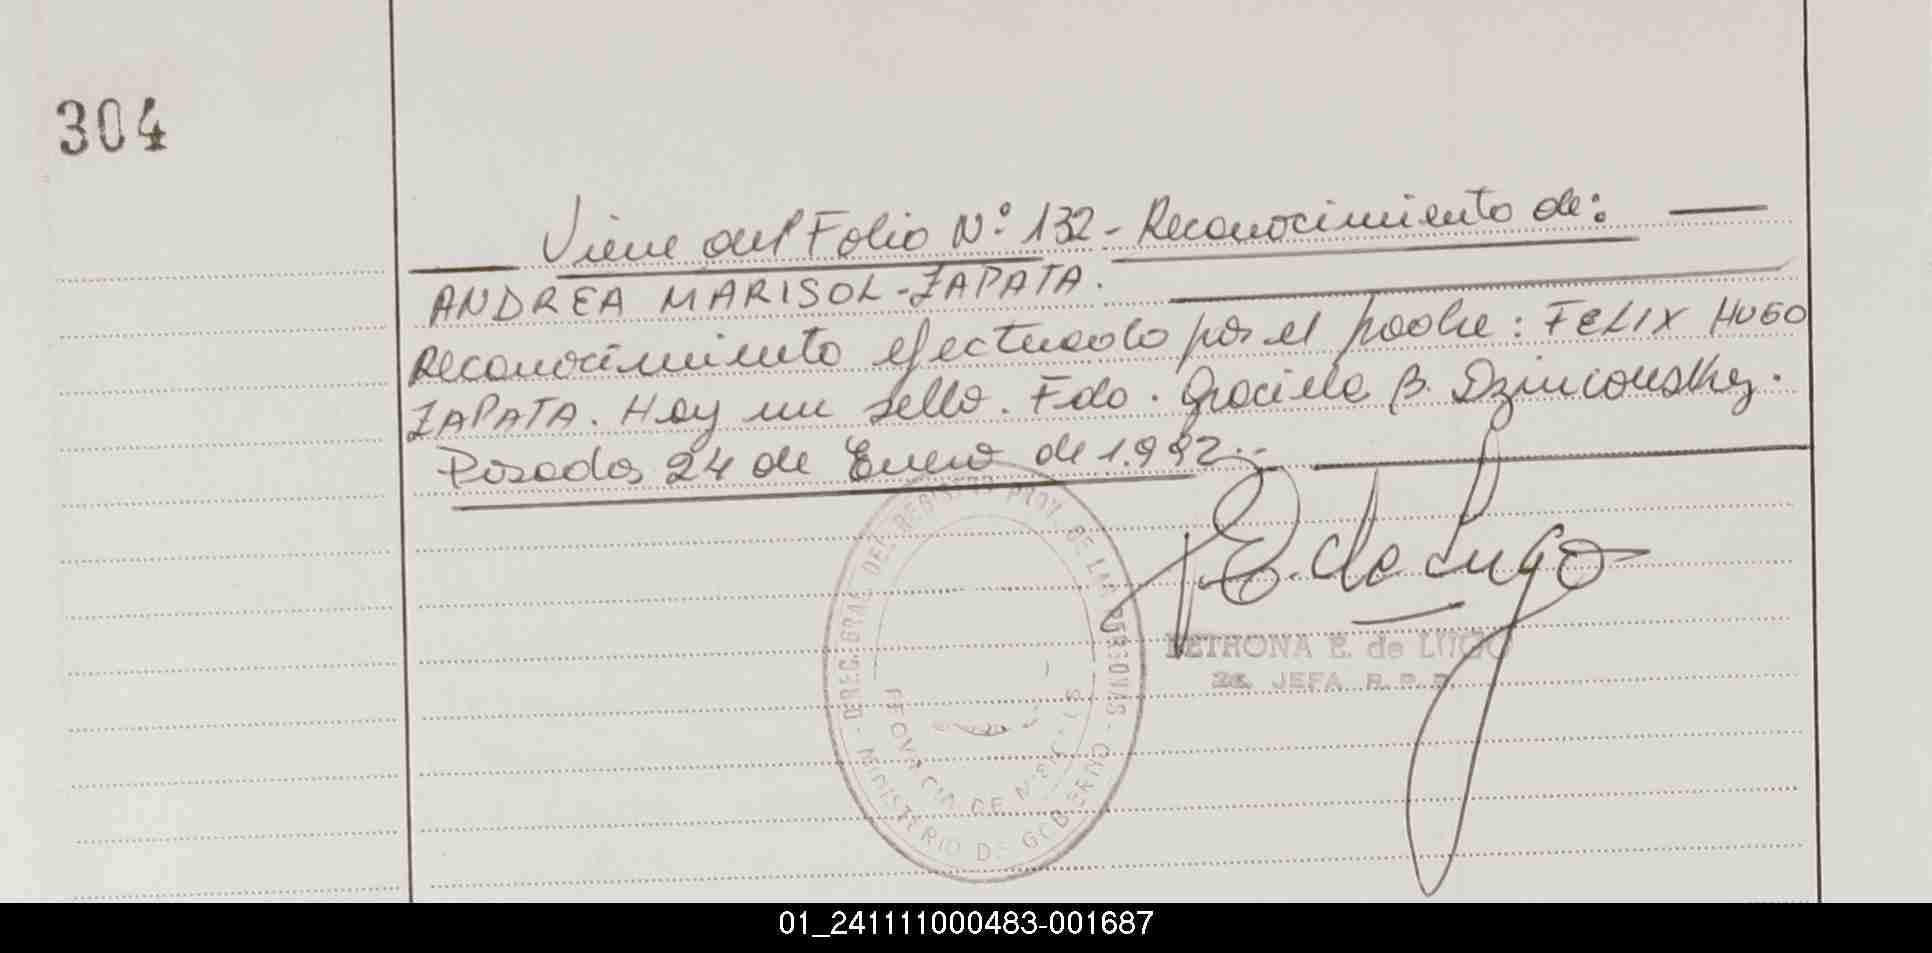 304
Viene del Folio N° 132 - Reconocimiento de:
ANDREA MARISOL - ZAPATA.
Reconocimiento efectuado por el padre : FELIX HUGO
ZAPATA. Hay un sello. Fdo. Graciela B. Dzincovskey.
Posadas 24 de Enero de 1.992.-
E. de Lugo
PETRONA E. de LUGO
2a. JEFA R.P.P.
DIREC. GRAL. DEL REGISTRO PROV. DE LAS PERSONAS
PROVINCIA DE MISIONES
MINISTERIO DE GOBIERNO
01_241111000483-001687